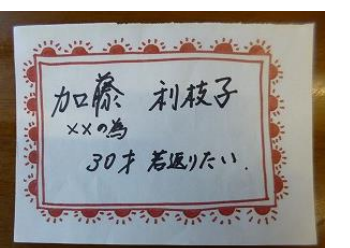 加藤 利枝子
××の為
30才 若返りたい.